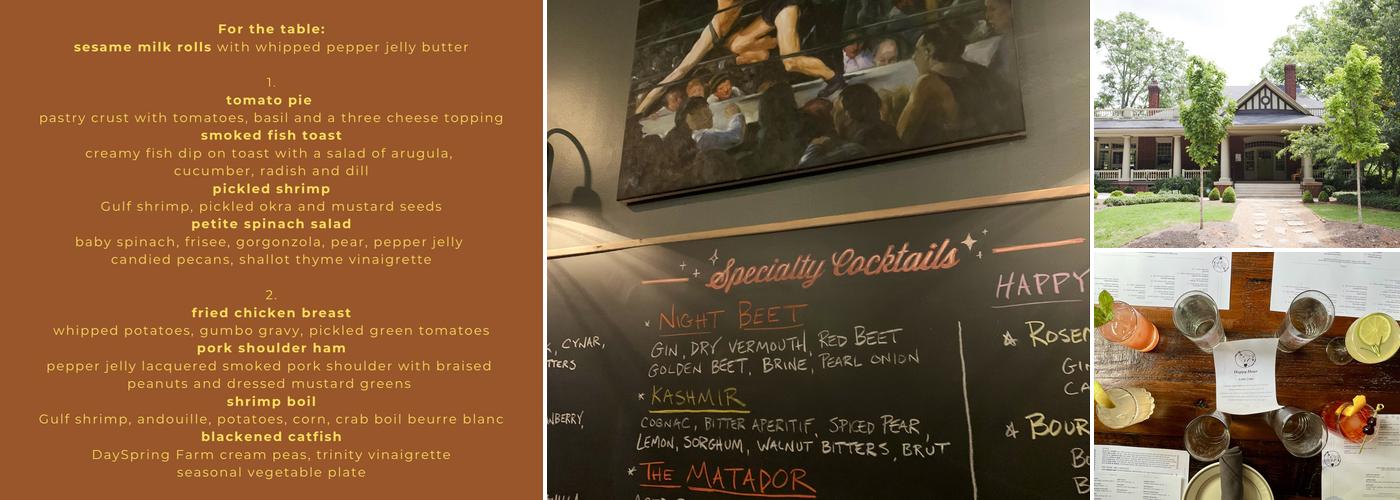 For the table:
sesame milk rolls with whipped pepper jelly butter
1.
tomato pie
pastry crust with tomatoes, basil and a three cheese topping
smoked fish toast
creamy fish dip on toast with a salad of arugula,
cucumber, radish and dill
pickled shrimp
Gulf shrimp, pickled okra and mustard seeds
petite spinach salad
baby spinach, frisee, gorgonzola, pear, pepper jelly
candied pecans, shallot thyme vinaigrette
2.
fried chicken breast
whipped potatoes, gumbo gravy, pickled green tomatoes
pork shoulder ham
pepper jelly lacquered smoked pork shoulder with braised
peanuts and dressed mustard greens
shrimp boil
Gulf shrimp, andouille, potatoes, corn, crab boil beurre blanc
blackened catfish
DaySpring Farm cream peas, trinity vinaigrette
seasonal vegetable plate
Specialty Cocktails
NIGHT BEET
GIN, DRY VERMOUTH, RED BEET
GOLDEN BEET, BRINE, PEARL ONION
KASHMIR
COGNAC, BITTER APERITIF, SPICED PEAR,
LEMON, SORGHUM, WALNUT BITTERS, BRUT
THE MATADOR
, CYNAR,
HAPPY
Happy Hour